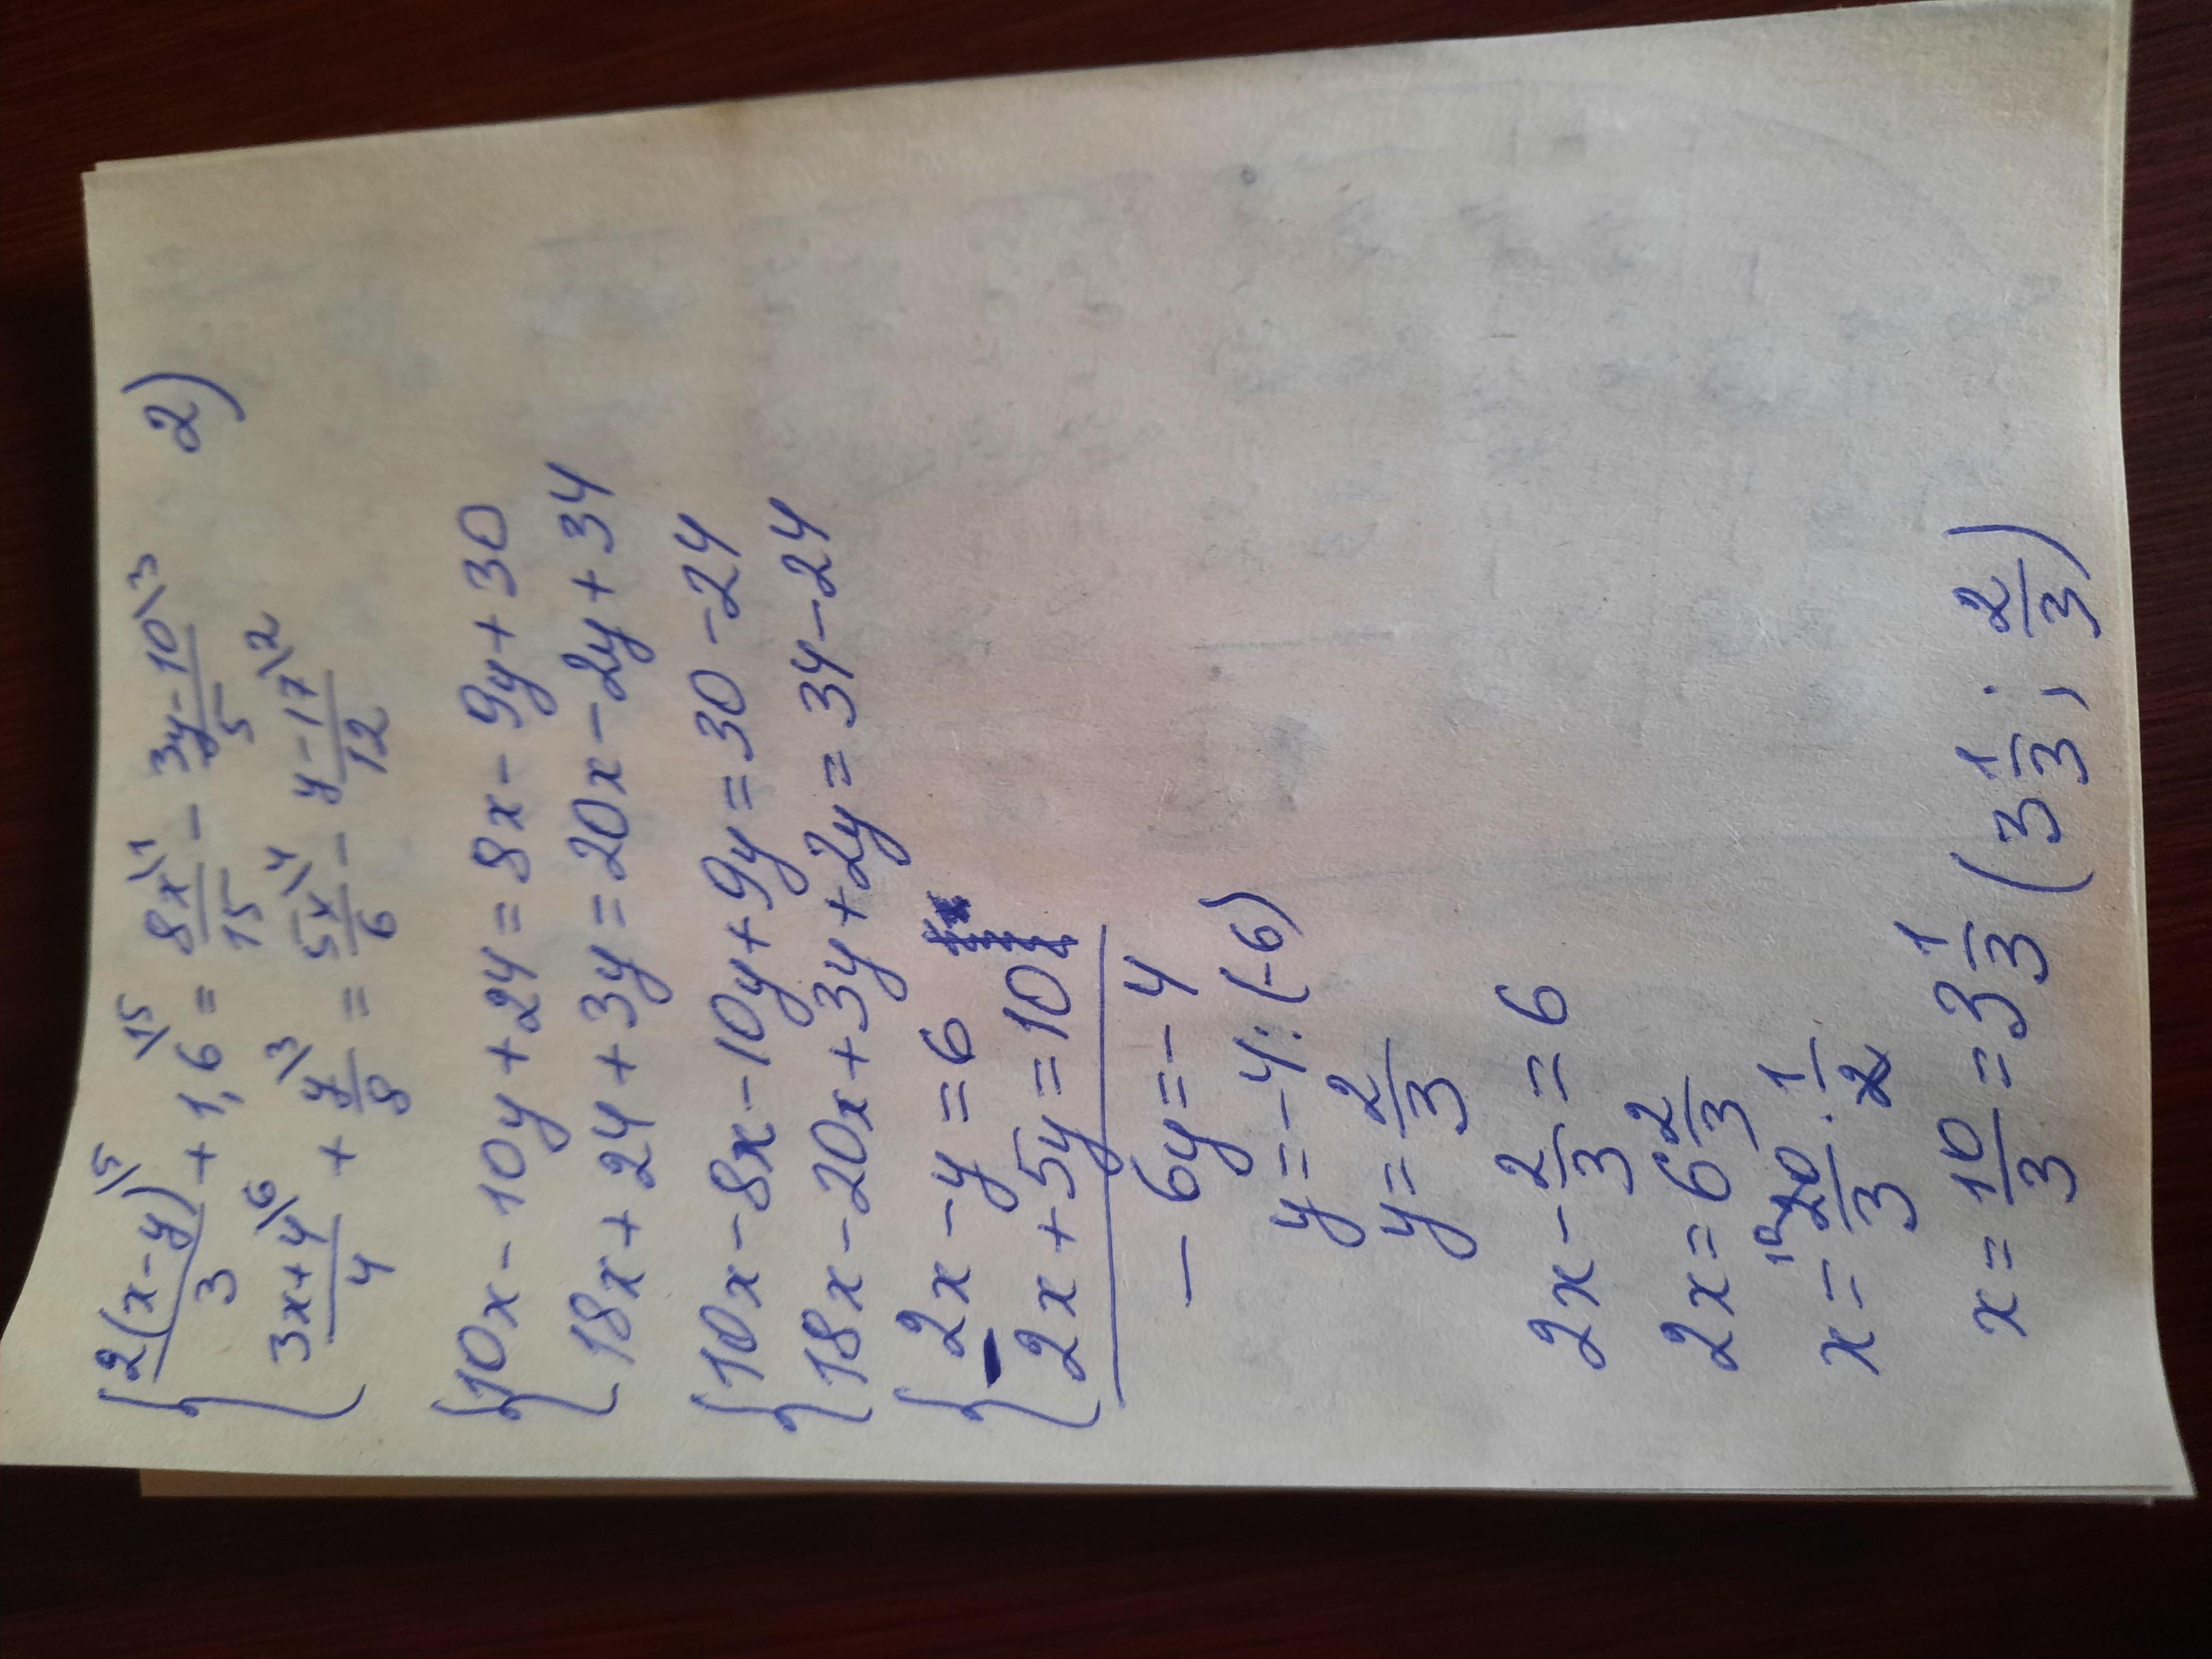 { 2(x-y)\5 / 3 + 1,6\15 = 8x\1 / 15 - 3y-10\3 / 5   2)
3x+4\6 / 4 + y\3 / 8 = 5x\4 / 6 - y-17\2 / 12
{ 10x-10y+24=8x-9y+30
18x+24+3y=20x-2y+34
{ 10x-8x-10y+9y=30-24
18x-20x+3y+2y=34-24
{ 2x-y=6
- 2x+5y=10
-6y=-4
y=-4:(-6)
y=2/3
2x-2/3=6
2x=6 2/3
x=10 20/3 · 1/2
x=10/3=3 1/3 (3 1/3; 2/3)